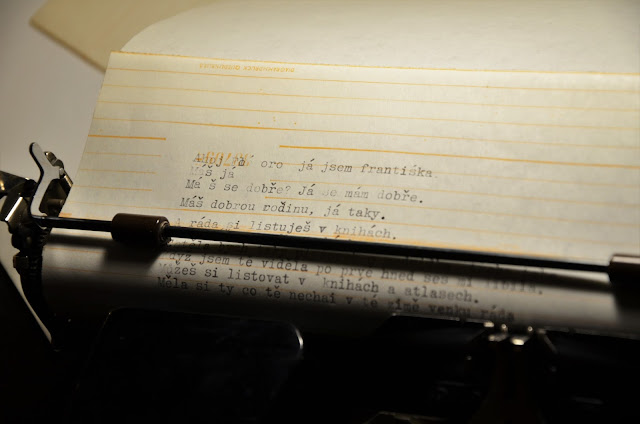 já oro já jsem františka.
Máš já
Má š se dobře? Já se mám dobře.
Máš dobrou rodinu, já taky.
A ráda si listuješ v knihách.
když jsem tě viděla po prvé hned ses mi líbila,
můžeš si listovat v knihách a atlasech.
Měla si ty co tě nechal v té zimě venku ráda